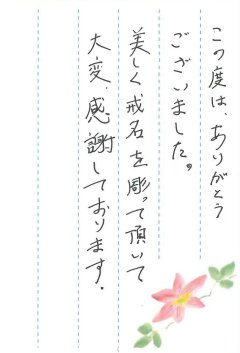 この度は、ありがとう
ございました。
美しく戒名を彫って頂いて
大変、感謝しております。